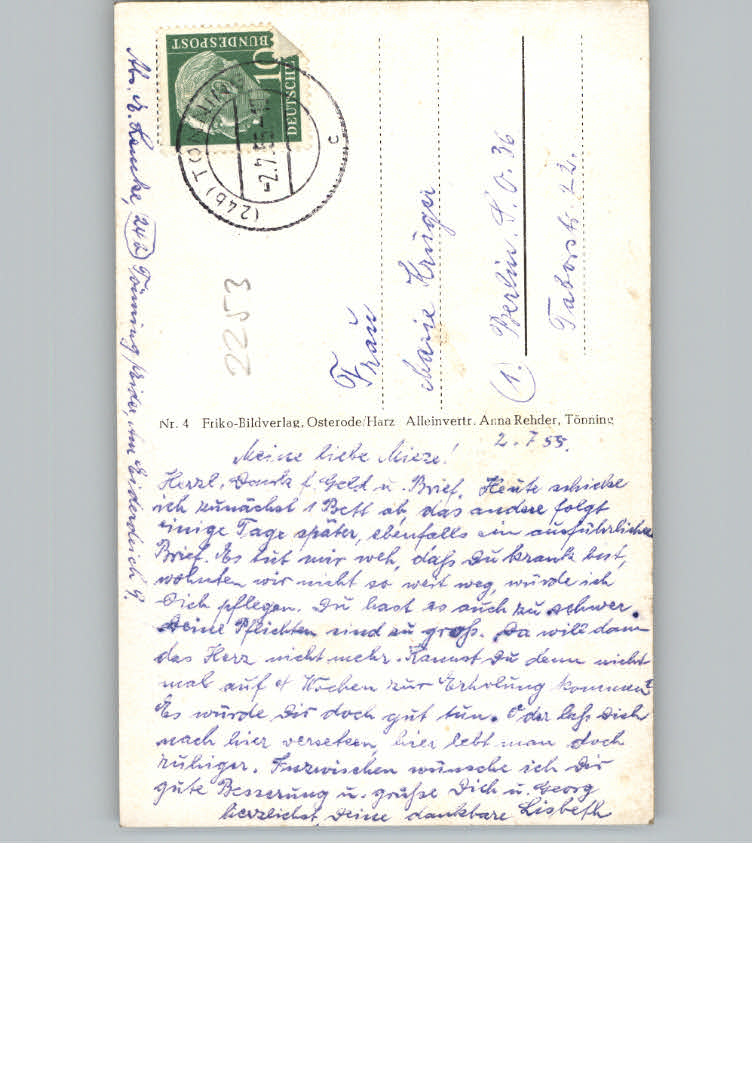 DEUTSCHE
BUNDESPOST
10
(24b) TÖNNING
-2.7.55-
c
2253
Frau
Marie Krüger
(1.) Berlin S.O. 36
Taborstr. 22.
Tönning, Am Eiderdeich 9.
Nr. 4 Friko-Bildverlag, Osterode/Harz Alleinvertr. Anna Rehder, Tönning
2.7.55.
Meine liebe Mieze!
Herzl. Dank f. Geld u. Brief. Heute schicke
ich zunächst 1 Bett ab, das andere folgt
einige Tage später, ebenfalls ein ausführlicher
Brief. Es tut mir weh, daß Du krank bist,
wohnten wir nicht so weit weg, würde ich
Dich pflegen. Du hast es auch zu schwer.
Deine Pflichten sind zu groß. Da will dann
das Herz nicht mehr. Kannst Du denn nicht
mal auf 4 Wochen zur Erholung kommen?
Es würde Dir doch gut tun. Oder laß Dich
nach hier versetzen, hier lebt man doch
ruhiger. Inzwischen wünsche ich Dir
gute Besserung u. grüße Dich u. Georg
herzlichst Deine dankbare Lisbeth